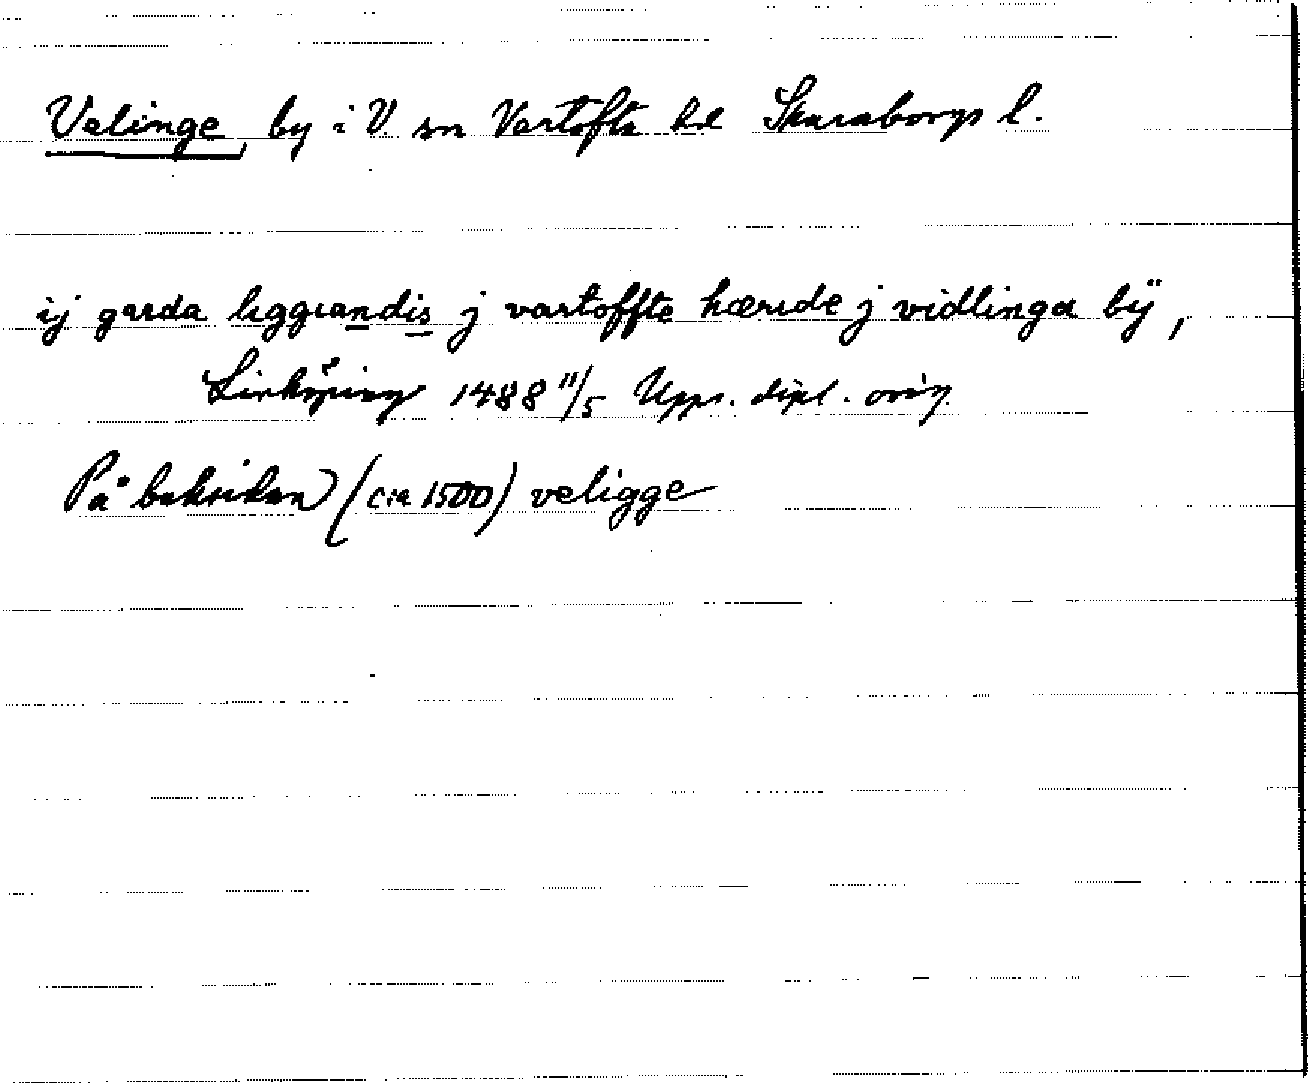 Velinge, by i V. sn Vartofta hd Skaraborgs l.
ij garda liggiandis j vartoffte hæride j vidlinga bÿ,
Linköping 1488 11/5 Upps. dipl. orig.
På baksidan (c:a 1500) veligge